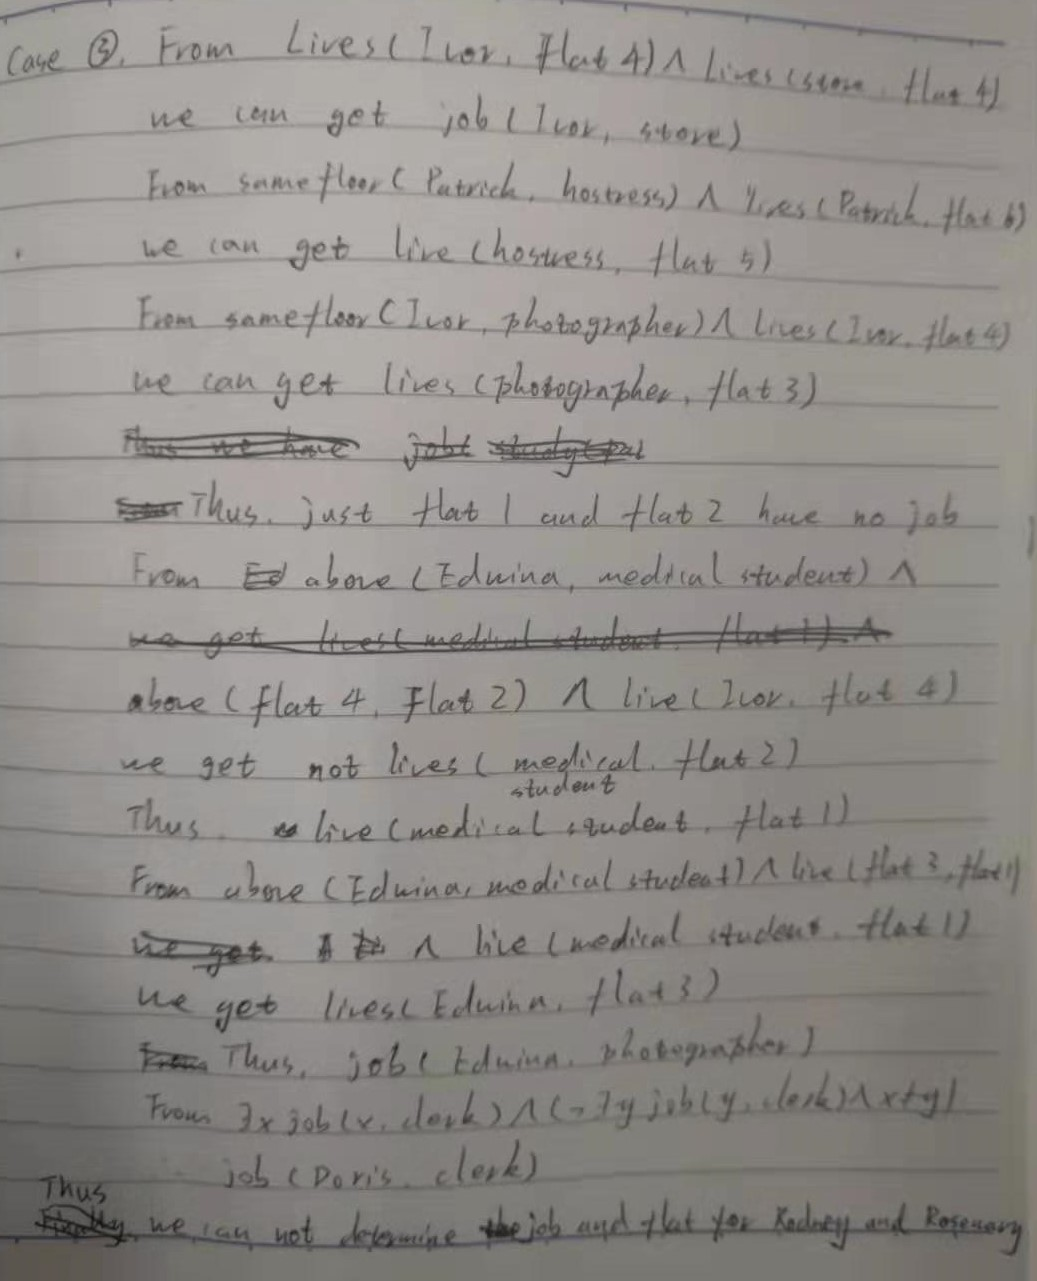 Case ③. From Lives(Ivor, flat 4) ∧ lives(store, flat 4)
we can get job(Ivor, store)
From samefloor(Patrick, hostress) ∧ lives(Patrick, flat 6)
we can get live(hostress, flat 5)
From samefloor(Ivor, photographer) ∧ lives(Ivor, flat 4)
we can get lives(photographer, flat 3)
Thus we have job
Thus. just flat 1 and flat 2 have no job
From Ed above(Edwina, medical student) ∧
we get lives(medical student, flat 1) ∧
above(flat 4, Flat 2) ∧ live(Ivor, flat 4)
we get not lives(medical student, flat 2)
Thus. live(medical student, flat 1)
From above(Edwina, medical student) ∧ live(flat 3, flat 1)
we get. ∧ live(medical student, flat 1)
we get lives(Edwina, flat 3)
From Thus, job(Edwina, photographer)
From ∃x job(x, clerk) ∧ (¬∃y job(y, clerk) ∧ x≠y)
job(Doris, clerk)
Thus
Finally, we can not determine the job and flat for Rodney and Rosemary